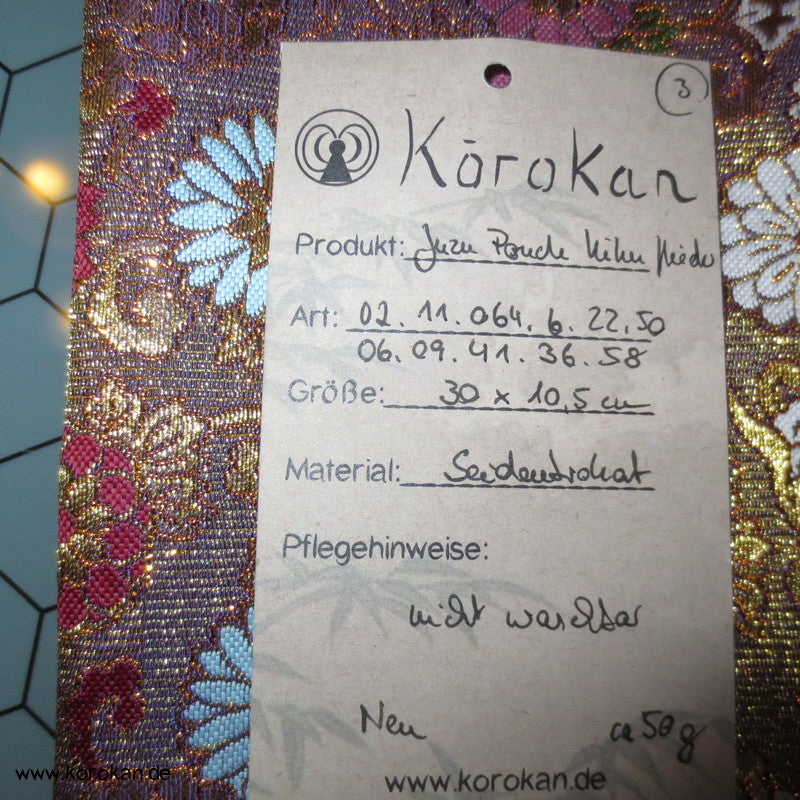 3
Kōrokan
Produkt: Juzu Pouch Kiku Flieder
Art: 02.11.064.6.22,50
06.09.41.36.58
Größe: 30 x 10,5 cm
Material: Seidenbrokat
Pflegehinweise:
nicht waschbar
Neu ca 50 g
www.korokan.de
www.korokan.de